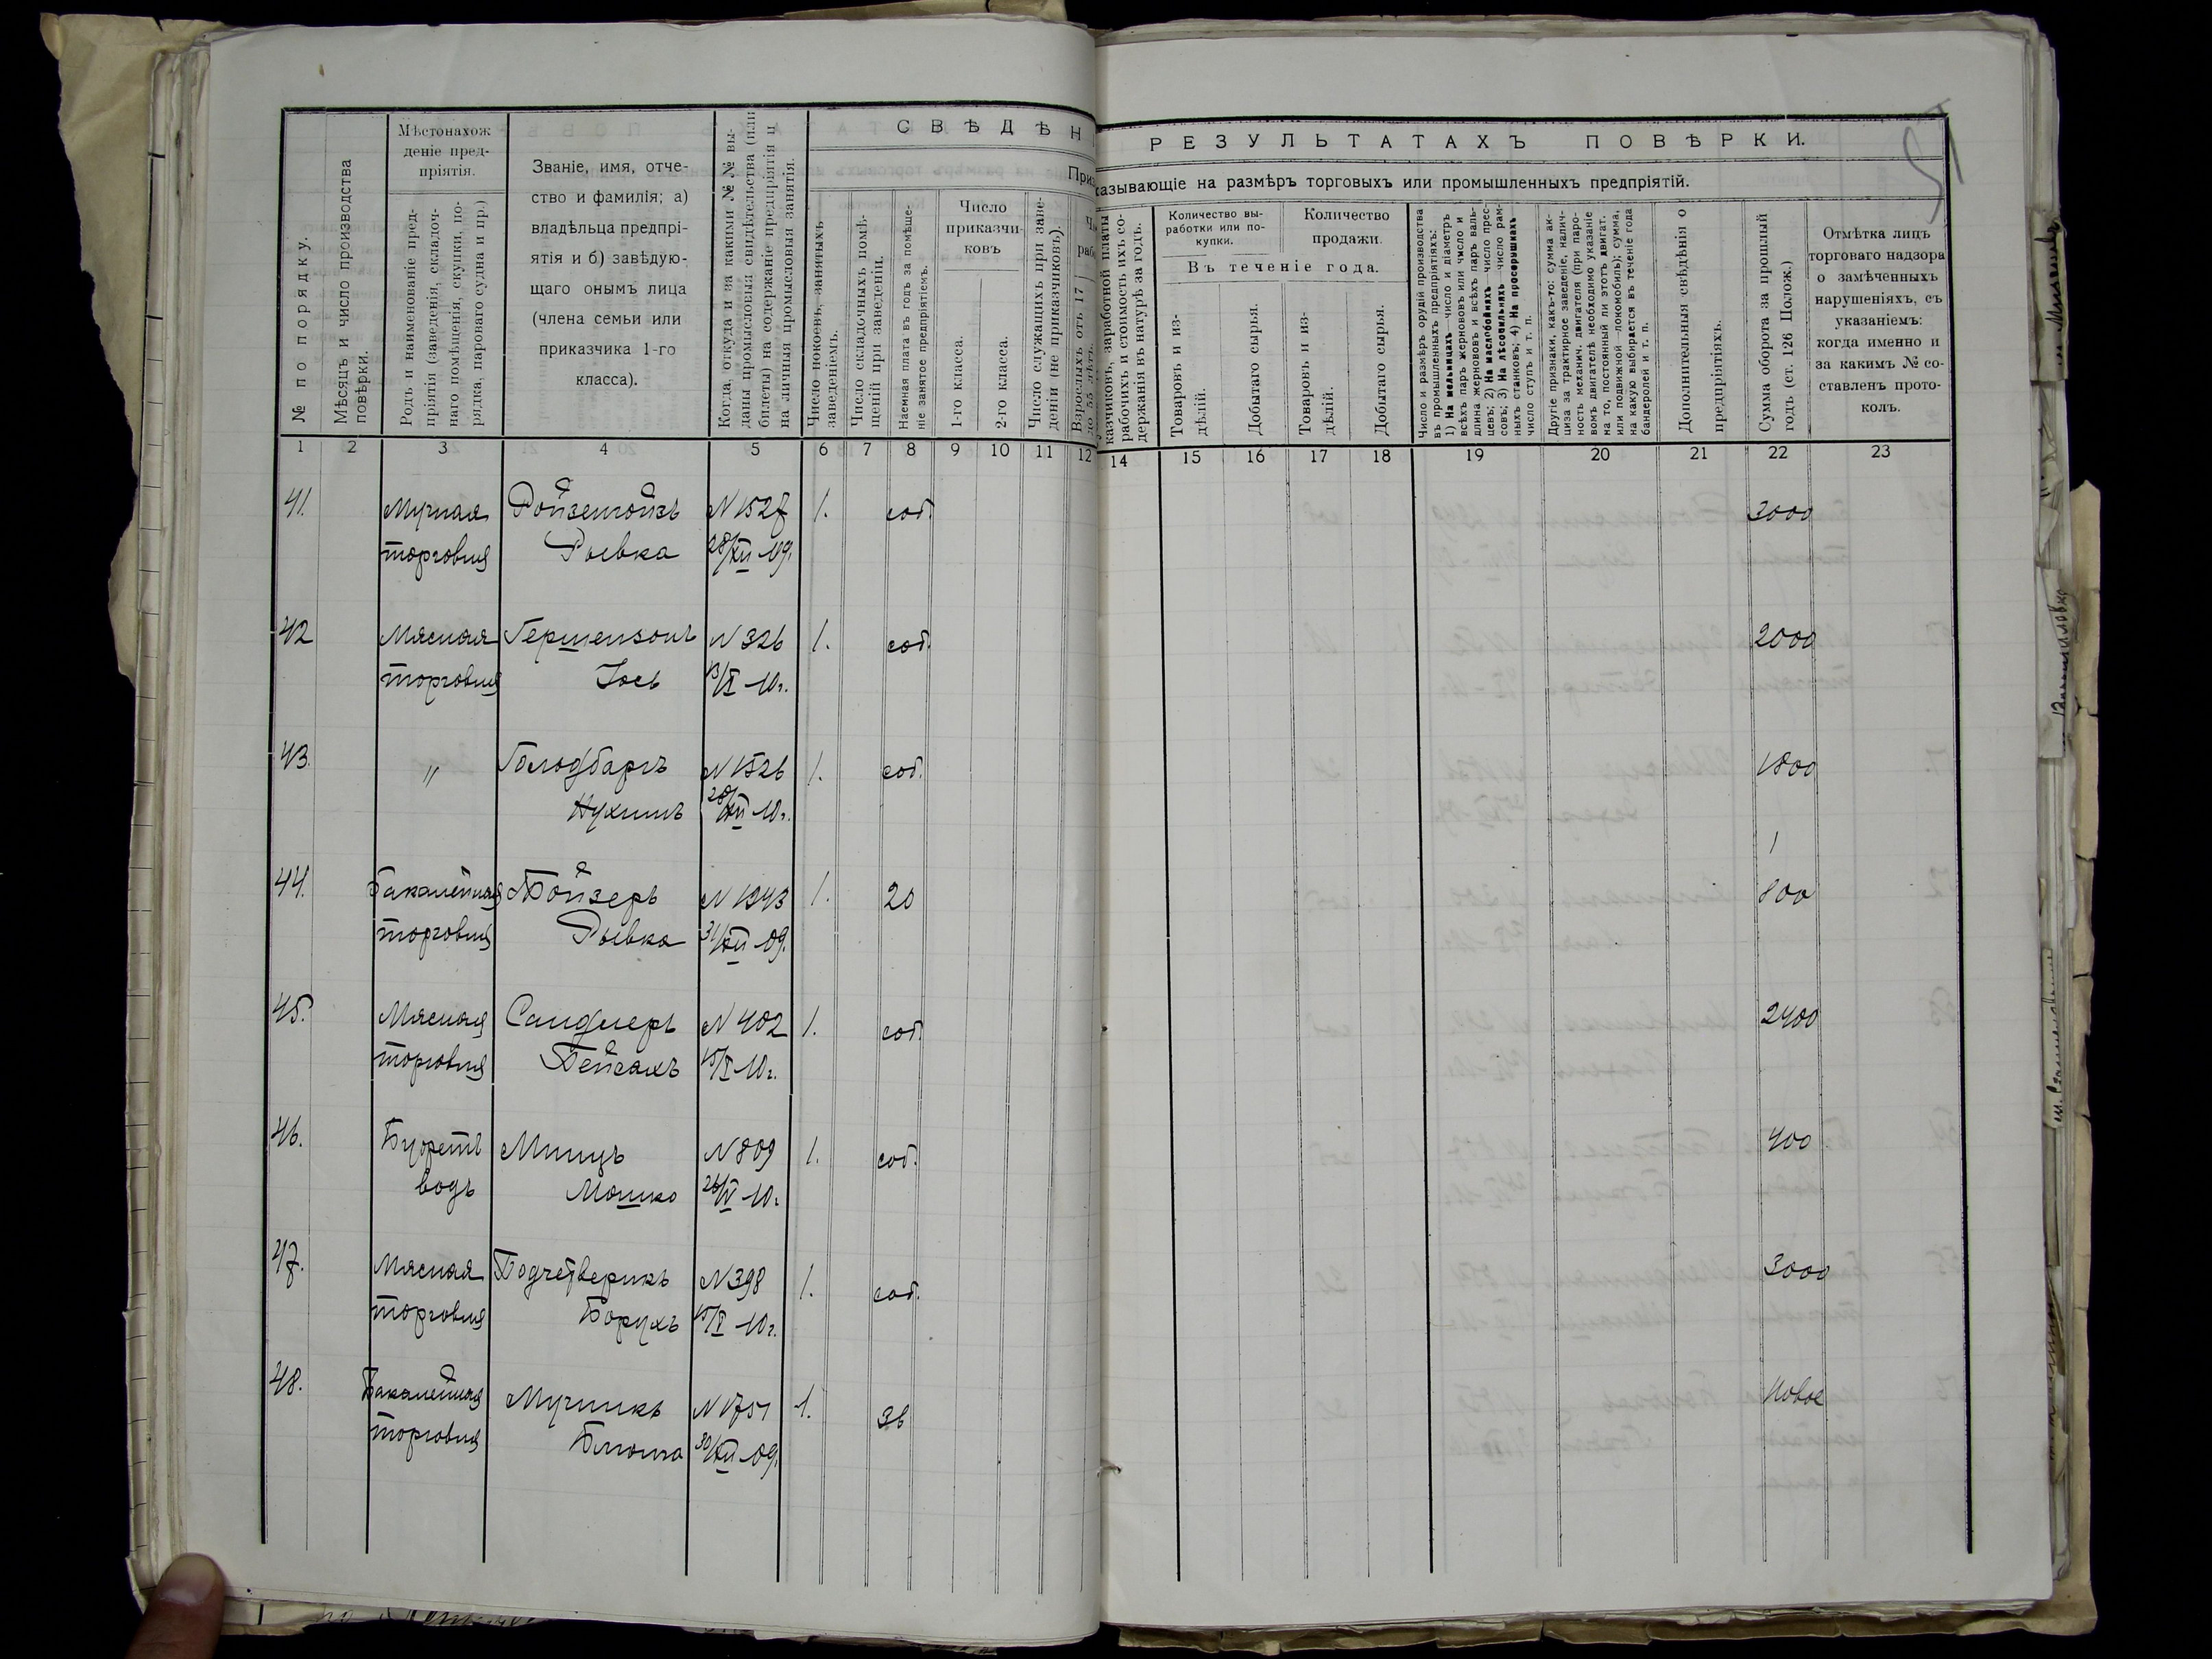 СВѢДѢН
РЕЗУЛЬТАТАХЪ ПОВѢРКИ.
Приз
казывающіе на размѣръ торговыхъ или промышленныхъ предпріятій.
№ по порядку.
Мѣсяцъ и число производства
повѣрки.
Мѣстонахож
деніе пред-
пріятія.
Родъ и наименованіе пред-
пріятія (заведенія, складоч-
наго помѣщенія, скупки, по-
рядка, пароваго судна и пр.)
Званіе, имя, отче-
ство и фамилія; а)
владѣльца предпрі-
ятія и б) завѣдую-
щаго онымъ лица
(члена семьи или
приказчика 1-го
класса).
Когда, откуда и за какими №№ вы-
даны промысловыя свидѣтельства (или
билеты) на содержаніе предпріятія и
на личныя промысловыя занятія.
Число покоевъ, занятыхъ
заведеніемъ.
Число складочныхъ помѣ-
щеній при заведеніи.
Наемная плата въ годъ за помѣще-
ніе занятое предпріятіемъ.
Число
приказчи-
ковъ
1-го класса.
2-го класса.
Число служащихъ при заве-
деніи (не приказчиковъ).
Взрослыхъ отъ 17
до 55 лѣтъ.
казчиковъ, заработной платы
рабочихъ и стоимость ихъ со-
держанія въ натурѣ за годъ.
Количество вы-
работки или по-
купки.
Количество
продажи.
Въ теченіе года.
Товаровъ и из-
дѣлій.
Добытаго сырья.
Товаровъ и из-
дѣлій.
Добытаго сырья.
Число и размѣръ орудій производства
въ промышленныхъ предпріятіяхъ:
1) На мельницахъ число и діаметръ
всѣхъ паръ жернововъ или число и
длина жернововъ и всѣхъ паръ валь-
цевъ; 2) На маслобойняхъ число прес-
совъ; 3) На лѣсопильняхъ число рам-
ныхъ станковъ; 4) На просорушкахъ
число ступъ и т. п.
Другіе признаки, какъ-то: сумма ак-
циза за трактирное заведеніе, налич-
ность механич. двигателя (при паро-
вомъ двигателѣ необходимо указаніе
на то, постоянный ли этотъ двигат.
или подвижной-локомобиль); сумма,
на какую выбирается въ теченіе года
бандеролей и т. п.
Дополнительныя свѣдѣнія о
предпріятіяхъ.
Сумма оборота за прошлый
годъ (ст. 126 Полож.)
Отмѣтка лицъ
торговаго надзора
о замѣченныхъ
нарушеніяхъ, съ
указаніемъ:
когда именно и
за какимъ № со-
ставленъ прото-
колъ.
1 2 3 4 5 6 7 8 9 10 11 12 14 15 16 17 18 19 20 21 22 23
41. Мучная Ройземтойзъ N 1527 1. соб. 3000
торговля Рывка 28/XII 09.
42 Мясная Гершензонъ N 326 1. соб. 2000
торговля Іось 13/I 10 г.
43. " Голодбаргъ N 1526 1. соб. 1800
Нухимъ 28/XII 10 г.
44. Бакалейная Бойзеръ N 1943 1. 20 800
торговля Рывка 31/XII 09.
45. Мясная Сандлеръ N 402 1. соб. 2400
торговля Пейсахъ 15/I 10 г.
46. Буфетъ Минцъ N 809 1. соб. 400
водъ Мошко 26/IV 10 г.
47. Мясная Подчетверикъ N 398 1. соб. 3000
торговля Борухъ 15/I 10 г.
48. Бакалейная Мучникъ N 1751 1. 36 новое
торговля Блюма 30/XII 09.